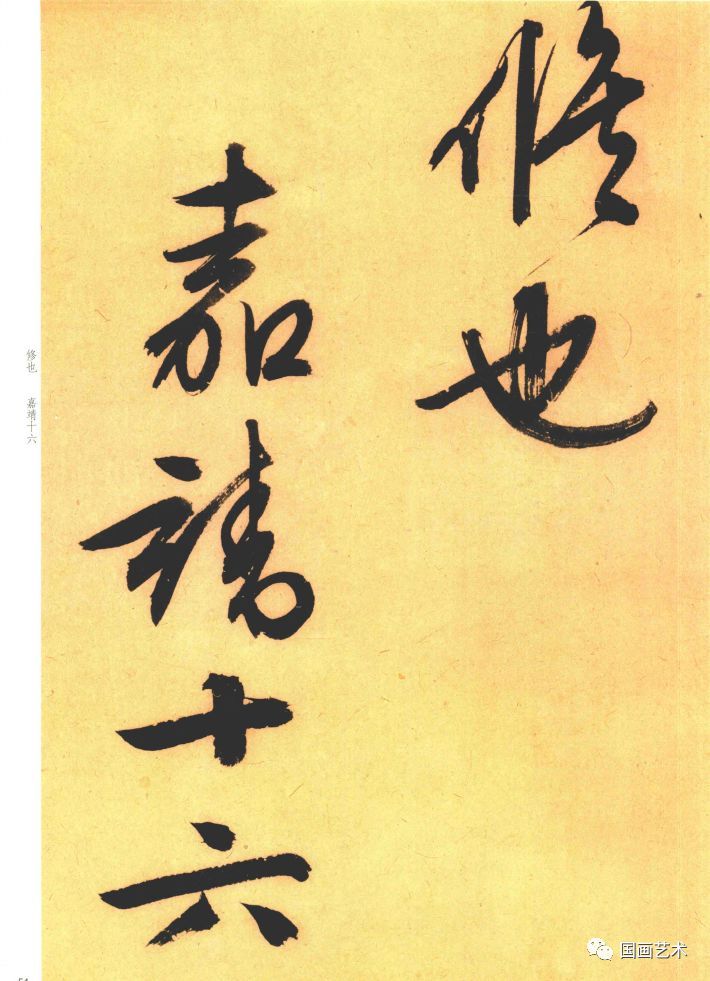 修也
嘉靖十六
修也 嘉靖十六
国画艺术